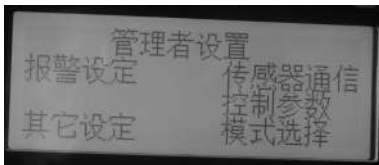 管理者设置
报警设定 传感器通信
控制参数
其它设定 模式选择